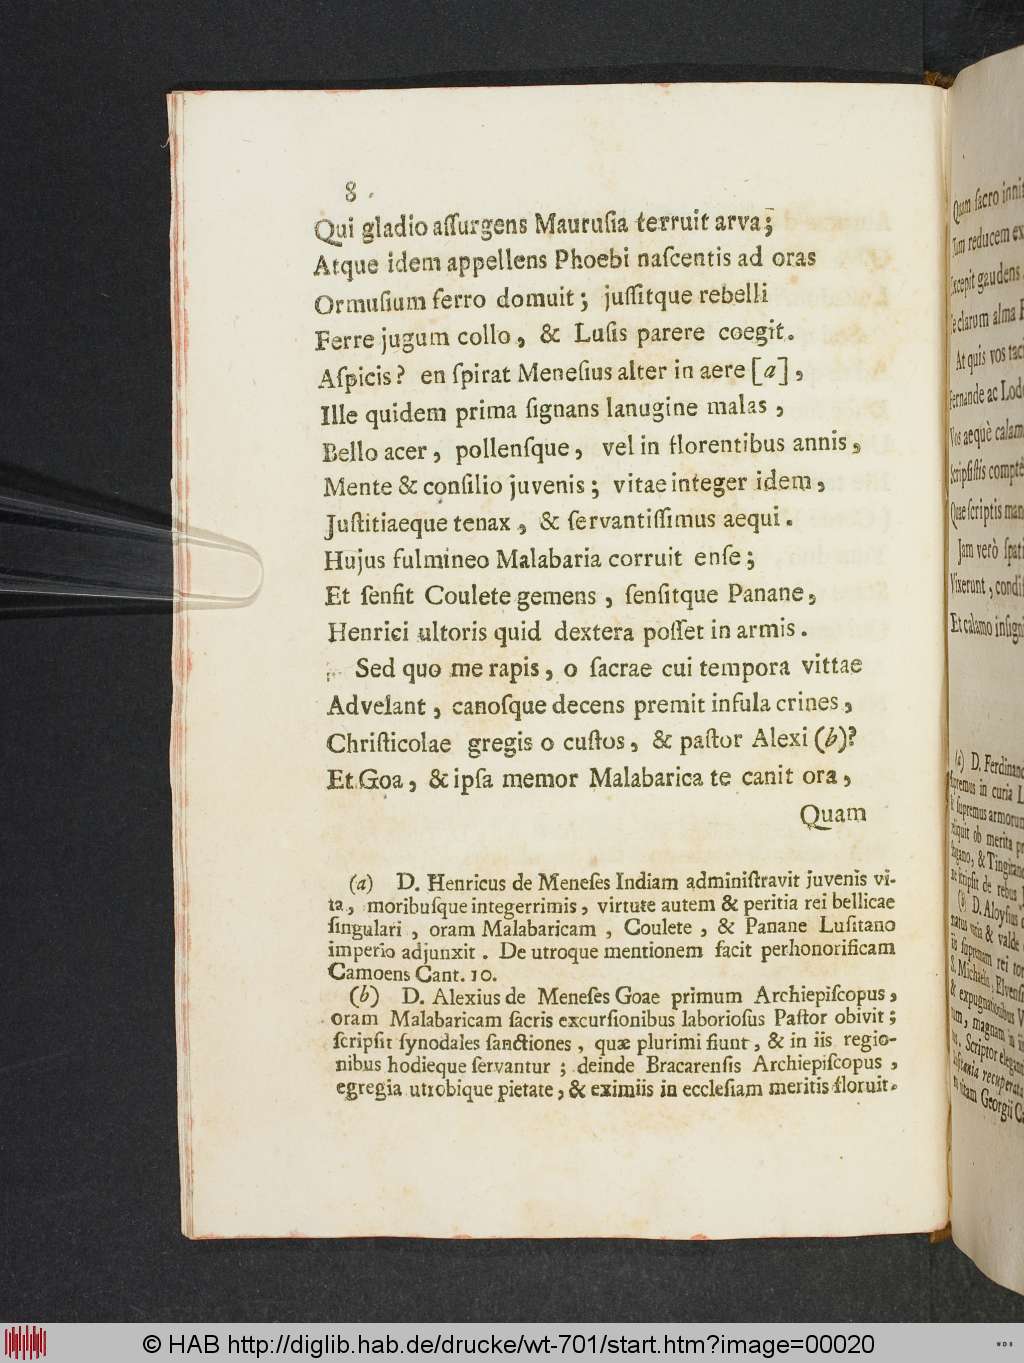 8
Qui gladio aſſurgens Mauruſia terruit arva;
Atque idem appellens Phoebi naſcentis ad oras
Ormuſium ferro domuit; juſſitque rebelli
Ferre jugum collo, & Luſis parere coegit.
Aſpicis? en ſpirat Meneſius alter in aere [a],
Ille quidem prima ſignans lanugine malas,
Bello acer, pollenſque, vel in florentibus annis,
Mente & conſilio juvenis; vitae integer idem,
Juſtitiaeque tenax, & ſervantiſſimus aequi.
Hujus fulmineo Malabaria corruit enſe;
Et ſenſit Coulete gemens, ſenſitque Panane,
Henrici ultoris quid dextera poſſet in armis.
Sed quo me rapis, o ſacrae cui tempora vittae
Advelant, canoſque decens premit infula crines,
Chriſticolae gregis o cuſtos, & paſtor Alexi (b)?
Et Goa, & ipſa memor Malabarica te canit ora,
Quam
(a) D. Henricus de Meneſes Indiam adminiſtravit juvenis vi-
ta, moribuſque integerrimis, virtute autem & peritia rei bellicae
ſingulari, oram Malabaricam, Coulete, & Panane Luſitano
imperio adjunxit. De utroque mentionem facit perhonorificam
Camoens Cant. 10.
(b) D. Alexius de Meneſes Goae primum Archiepiſcopus,
oram Malabaricam ſacris excurſionibus laborioſus Paſtor obivit;
ſcripſit ſynodales ſanctiones, quæ plurimi fiunt, & in iis regio-
nibus hodieque ſervantur; deinde Bracarenſis Archiepiſcopus,
egregia utrobique pietate, & eximiis in eccleſiam meritis floruit.
Quam ſacro
Jam reducem
Excepit gaudens
Te clarum alma
At quis vos
Fernande ac
Vos aequè
Scripſiſtis
Quae ſcriptis
Jam verò
Vixerunt,
Et calamo
(a) D.
in curia
& ſupremus
ob merita
& 
de rebus
(b) D. Aloyſius
& valde
ſupremam rei
S. Michaelis,
& expugnationibus
magnam in
Scriptor
vitam Georgii
© HAB http://diglib.hab.de/drucke/wt-701/start.htm?image=00020